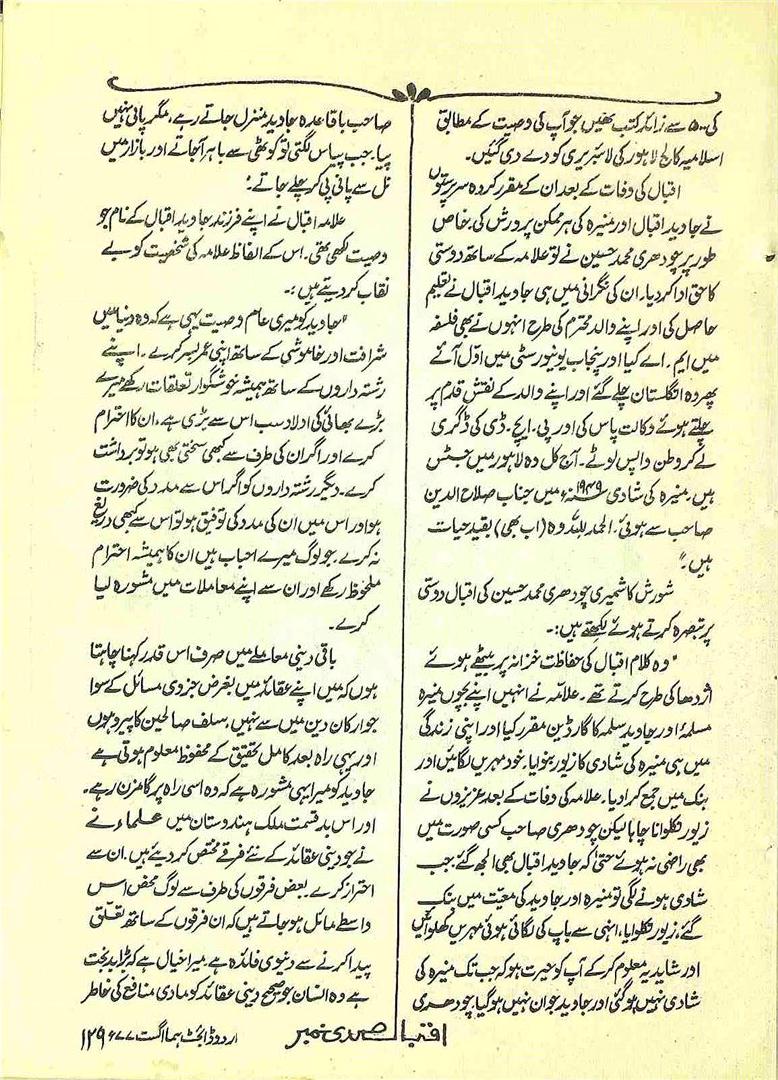 کی ۵۰۰ سے زائد کتب تھیں جو آپ کی وصیت کے مطابق
اسلامیہ کالج لاہور کی لائبریری کو دے دی گئیں۔
اقبال کی وفات کے بعد ان کے مقرر کردہ سرپرستوں
نے جاوید اقبال اور منیرہ کی ہر ممکن پرورش کی۔ خاص
طور پر چودھری محمد حسین نے تو علامہ کے ساتھ دوستی
کا حق ادا کر دیا۔ ان کی نگرانی میں ہی جاوید اقبال نے تعلیم
حاصل کی اور اپنے والد محترم کی طرح انہوں نے بھی فلسفہ
میں ایم۔ اے کیا اور پنجاب یونیورسٹی میں اوّل آئے
پھر وہ انگلستان چلے گئے اور اپنے والد کے نقش قدم پر
چلتے ہوئے وکالت پاس کی اور پی۔ ایچ۔ ڈی کی ڈگری
لے کر وطن واپس لوٹے۔ آج کل وہ لاہور میں جسٹس
ہیں۔ منیرہ کی شادی ۱۹۴۹ء میں جناب صلاح الدین
صاحب سے ہوئی۔ الحمد للہ وہ (اب بھی) بقید حیات
ہیں۔"
شورش کاشمیری چودھری محمد حسین کی اقبال دوستی
پر تبصرہ کرتے ہوئے لکھتے ہیں:۔
"وہ کلام اقبال کی حفاظت خزانہ پر بیٹھے ہوئے
اژدھا کی طرح کرتے تھے۔ علامّہ نے انہیں اپنے بچوں منیرہ
سلمہا اور جاوید سلمہ کا گارڈین مقرر کیا اور اپنی زندگی
میں ہی منیرہ کی شادی کا زیور بنوایا۔ خود مہریں لگائیں اور
بنک میں جمع کرا دیا۔ علامہ کی وفات کے بعد عزیزوں نے
زیور نکلوانا چاہا لیکن چودھری صاحب کسی صورت میں
بھی راضی نہ ہوئے حتیٰ کہ جاوید اقبال بھی الجھ گئے۔ جب
شادی ہونے لگی تو منیرہ اور جاوید کی معیّت میں بنک
گئے، زیور نکلوایا، انہی سے باپ کی لگائی ہوئی مہریں کھلوائیں
اور شاید یہ معلوم کر کے آپ کو حیرت ہو کہ جب تک منیرہ کی
شادی نہیں ہو گئی اور جاوید جوان نہیں ہو گیا۔ چودھری
صاحب باقاعدہ جاوید منزل جاتے رہے، مگر پانی نہیں
پیا۔ جب پیاس لگتی تو کوٹھی سے باہر آ جاتے اور بازار میں
نل سے پانی پی کر چلے جاتے۔"
علامہ اقبال نے اپنے فرزند جاوید اقبال کے نام جو
وصیت لکھی تھی۔ اس کے الفاظ علامہ کی شخصیت کو بے
نقاب کر دیتے ہیں:۔
"جاوید کو میری عام وصیت یہی ہے کہ وہ دنیا میں
شرافت اور خاموشی کے ساتھ اپنی عمر بسر کرے۔ اپنے
رشتہ داروں کے ساتھ ہمیشہ خوشگوار تعلقات رکھے میرے
بڑے بھائی کی اولاد سب اس سے بڑی ہے، ان کا احترام
کرے اور اگر ان کی طرف سے کبھی سختی بھی ہو تو برداشت
کرے۔ دیگر رشتہ داروں کو اگر اس سے مدد کی ضرورت
ہو اور اس میں ان کی مدد کی توفیق ہو تو اس سے کبھی دریغ
نہ کرے۔ جو لوگ میرے احباب ہیں ان کا ہمیشہ احترام
ملحوظ رکھے اور ان سے اپنے معاملات میں مشورہ لیا
کرے۔
باقی دینی معاملے میں صرف اس قدر کہنا چاہتا
ہوں کہ میں اپنے عقائد میں بغرض جزوی مسائل کے سوا
جو ارکان دین میں سے نہیں، سلف صالحین کا پیرو ہوں
اور یہی راہ بعد کامل تحقیق کے محفوظ معلوم ہوتی ہے
جاوید کو میرا یہی مشورہ ہے کہ وہ اسی راہ پر گامزن رہے۔
اور اس بد قسمت ملک ہندوستان میں علماء نے
نے جو دینی عقائد کے نئے فرقے مختص کر دیئے ہیں۔ ان سے
احتراز کرے۔ بعض فرقوں کی طرف سے لوگ محض اس
واسطے مائل ہو جاتے ہیں کہ ان فرقوں کے ساتھ تعلّق
پیدا کرنے سے دنیوی فائدہ ہے۔ میرا خیال ہے کہ بڑا بد بخت
ہے وہ انسان جو صحیح دینی عقائد کو مادی منافع کی خاطر
اقبال صدی نمبر
اردو ڈائجسٹ ہما اگست ۷۷ء ۱۲۹